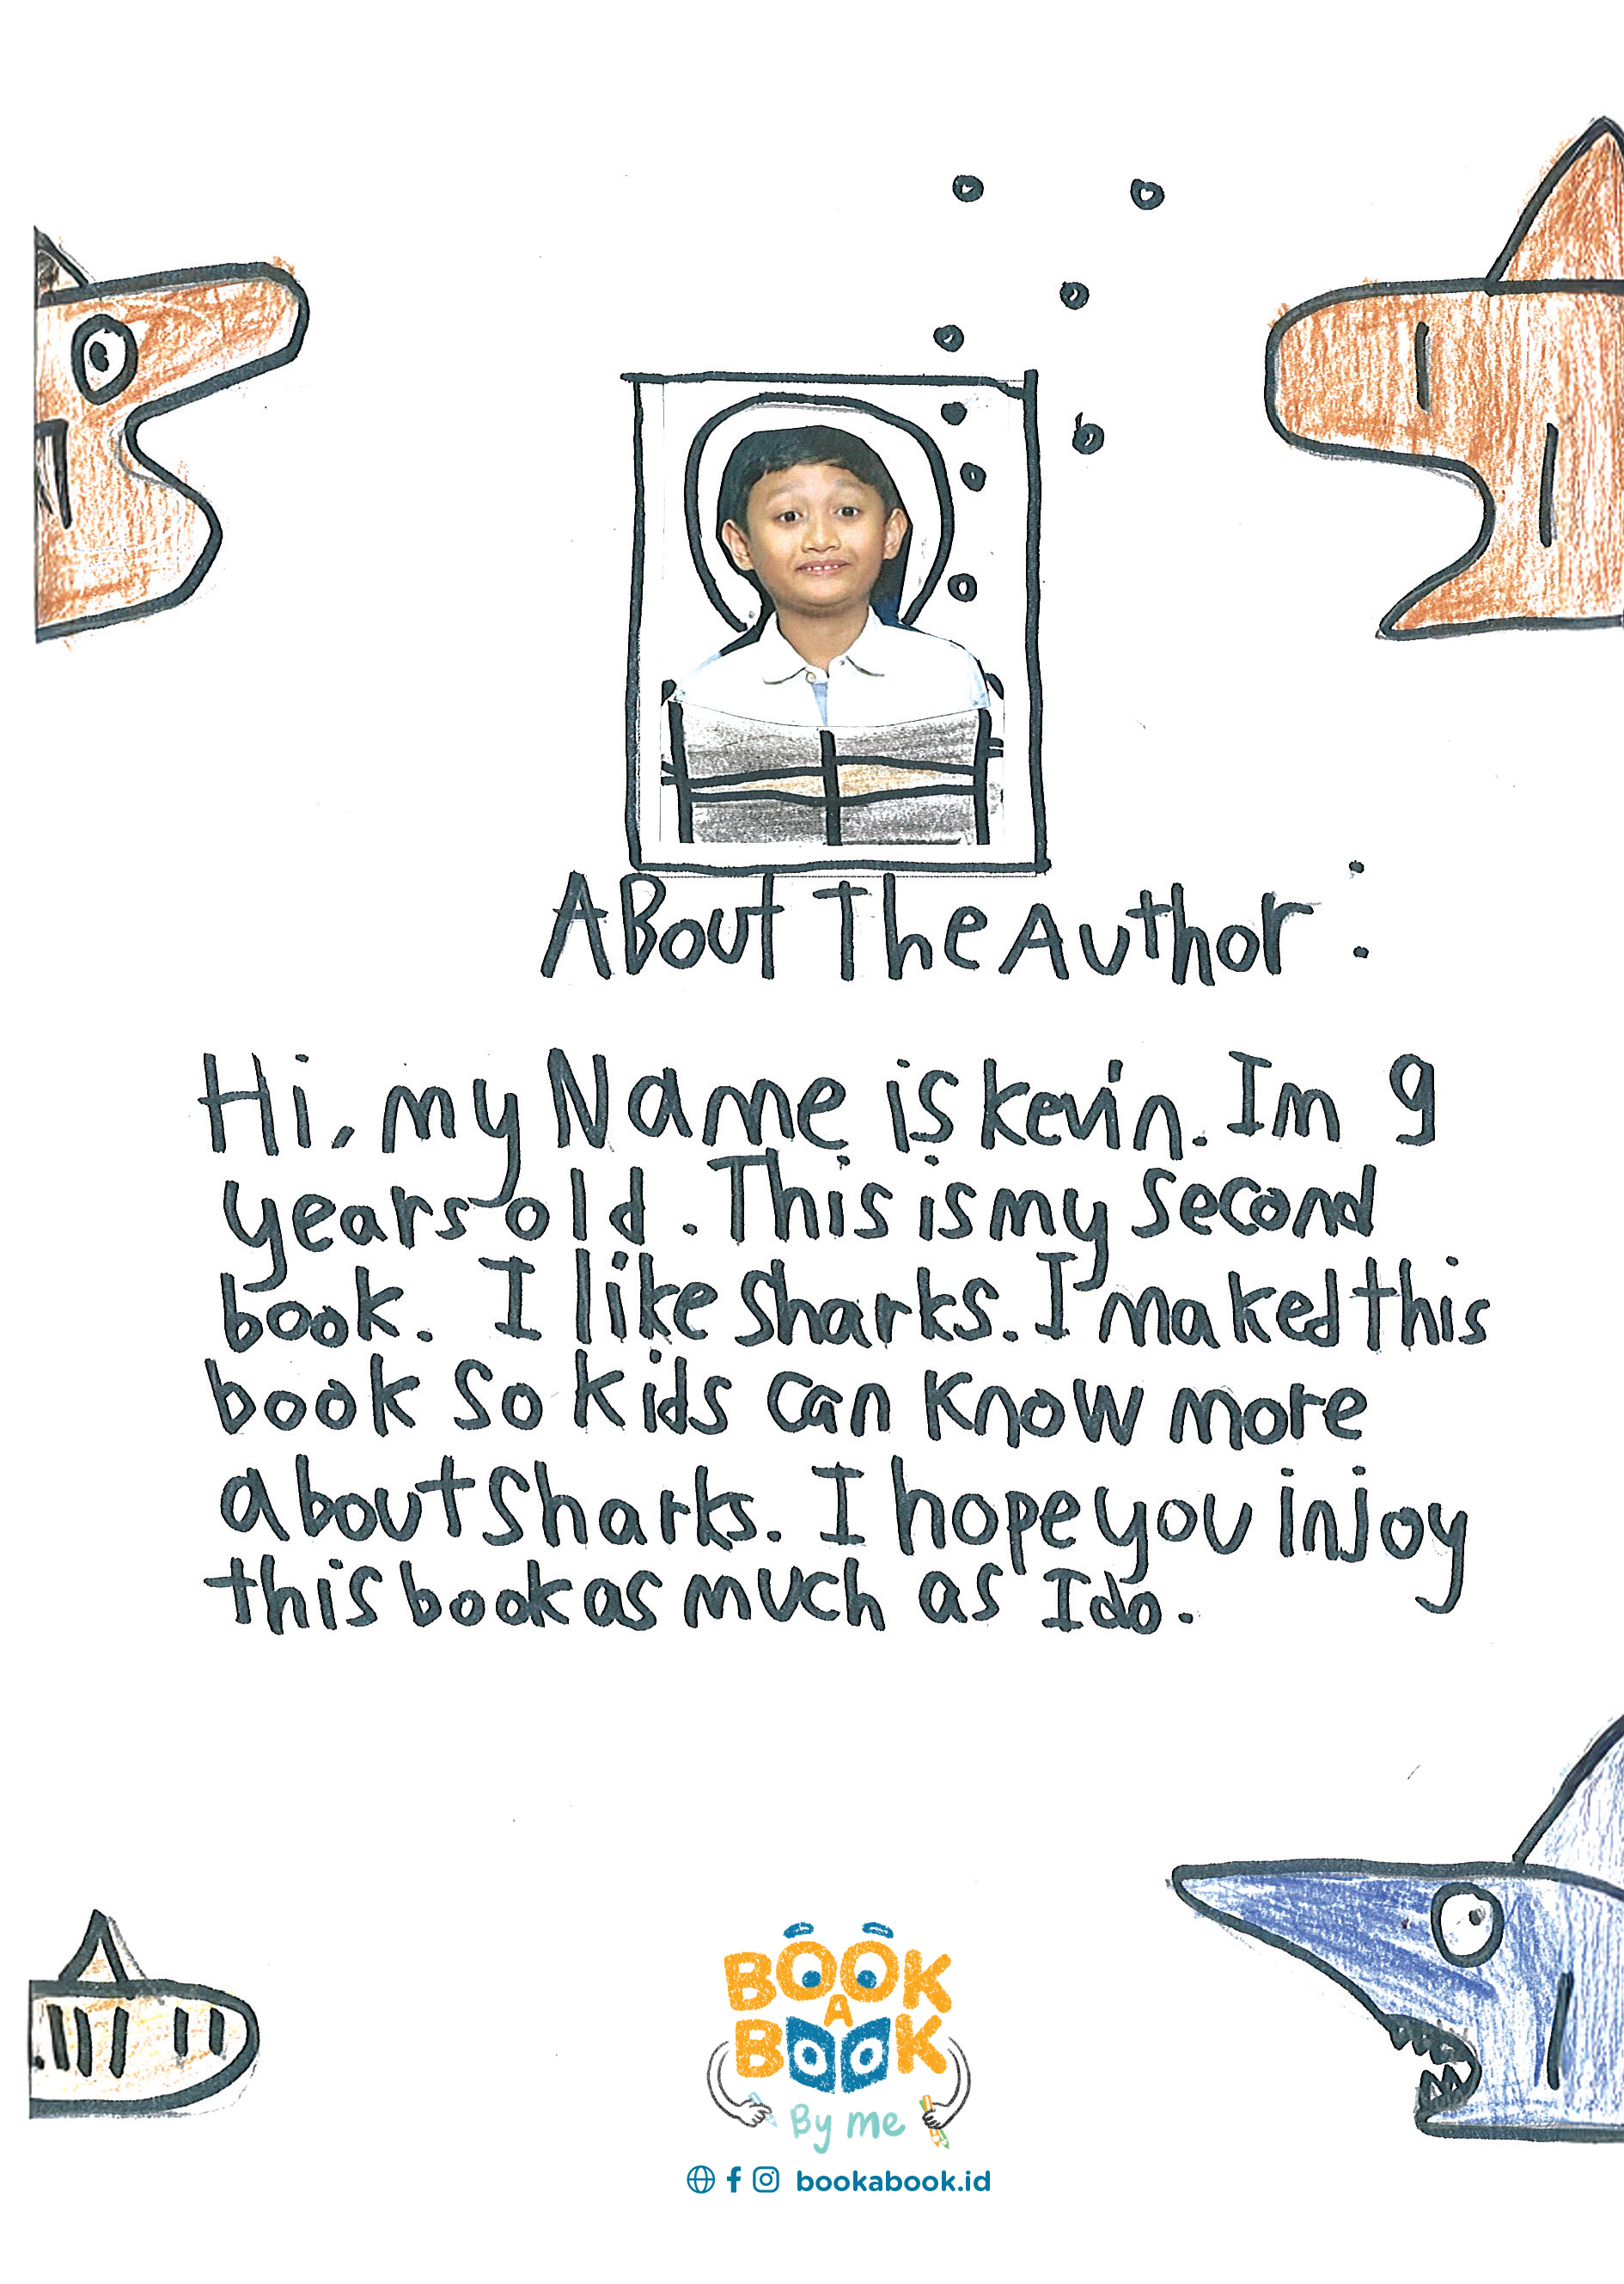 ABout The Author :
Hi, my Name is kevin. Im 9
years old. This is my second
book. I like sharks. I maked this
book so kids can know more
about sharks. I hope you injoy
this book as much as I do.
BOOK
A
BOOK
By me
bookabook.id